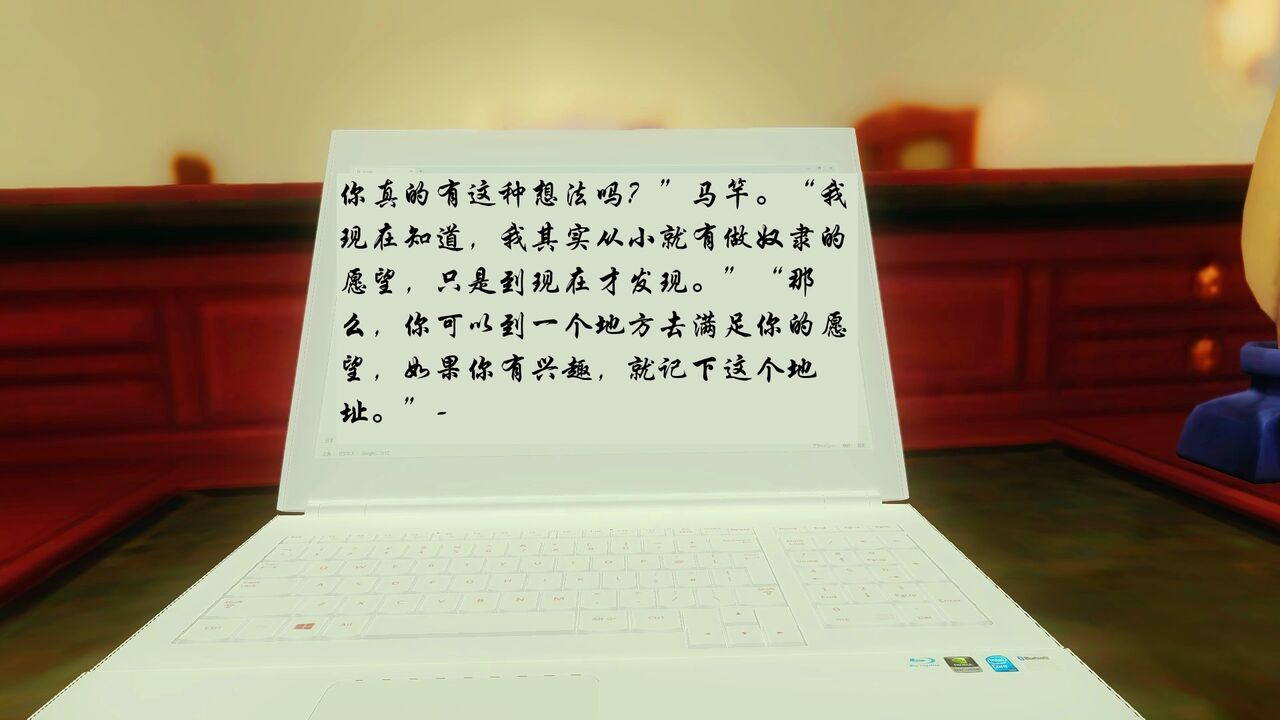 你真的有这种想法吗？”马竿。“我
现在知道，我其实从小就有做奴隶的
愿望，只是到现在才发现。”“那
么，你可以到一个地方去满足你的愿
望，如果你有兴趣，就记下这个地
址。”-